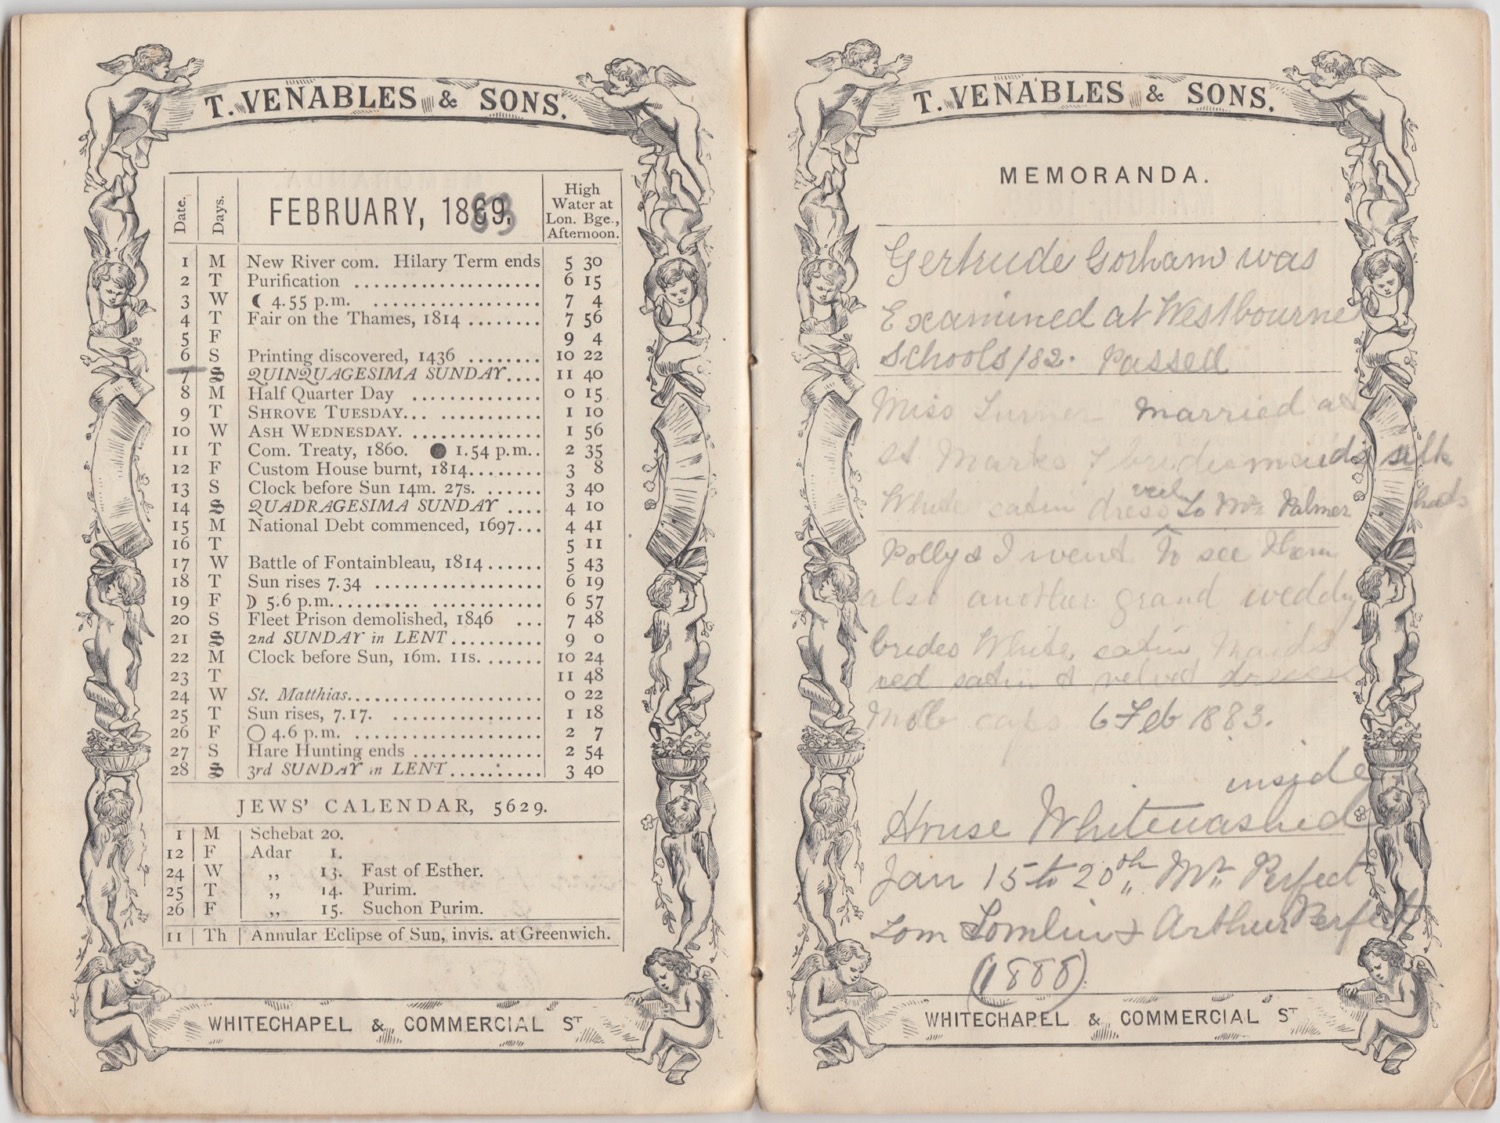 T. VENABLES & SONS.
Date. Days. FEBRUARY, 1869. High Water at Lon. Bge., Afternoon.
1 M New River com. Hilary Term ends 5 30
2 T Purification .................... 6 15
3 W ☾ 4.55 p.m. .................. 7 4
4 T Fair on the Thames, 1814 ........ 7 56
5 F 9 4
6 S Printing discovered, 1436 ........ 10 22
7 S QUINQUAGESIMA SUNDAY.... 11 40
8 M Half Quarter Day .............. 0 15
9 T SHROVE TUESDAY... ............ 1 10
10 W ASH WEDNESDAY. .............. 1 56
11 T Com. Treaty, 1860. ● 1.54 p.m.. 2 35
12 F Custom House burnt, 1814........ 3 8
13 S Clock before Sun 14m. 27s. ...... 3 40
14 S QUADRAGESIMA SUNDAY .... 4 10
15 M National Debt commenced, 1697... 4 41
16 T 5 11
17 W Battle of Fontainbleau, 1814...... 5 43
18 T Sun rises 7.34 .................. 6 19
19 F ☽ 5.6 p.m....................... 6 57
20 S Fleet Prison demolished, 1846 ... 7 48
21 S 2nd SUNDAY in LENT.......... 9 0
22 M Clock before Sun, 16m. 11s. ...... 10 24
23 T 11 48
24 W St. Matthias..................... 0 22
25 T Sun rises, 7.17. ................ 1 18
26 F ○ 4.6 p.m. .................... 2 7
27 S Hare Hunting ends .............. 2 54
28 S 3rd SUNDAY in LENT.......... 3 40
JEWS' CALENDAR, 5629.
1 M Schebat 20.
12 F Adar 1.
24 W ,, 13. Fast of Esther.
25 T ,, 14. Purim.
26 F ,, 15. Suchon Purim.
11 Th Annular Eclipse of Sun, invis. at Greenwich.
WHITECHAPEL & COMMERCIAL ST
T. VENABLES & SONS.
MEMORANDA.
Gertrude Gorham was
Examined at Westbourne
Schools /82. Passed
Miss Turner married at
St Marks 7 bridesmaids silk
White satin dress veil to Mrs Palmer
Polly & I went to see them
also another grand wedding
brides White satin maids
red satin & velvet dresses
Mob caps 6 Feb 1883.
inside
House Whitewashed
Jan 15 to 20th Mr Perfect
Tom Tomlin & Arthur Perfect
(1888)
WHITECHAPEL & COMMERCIAL ST